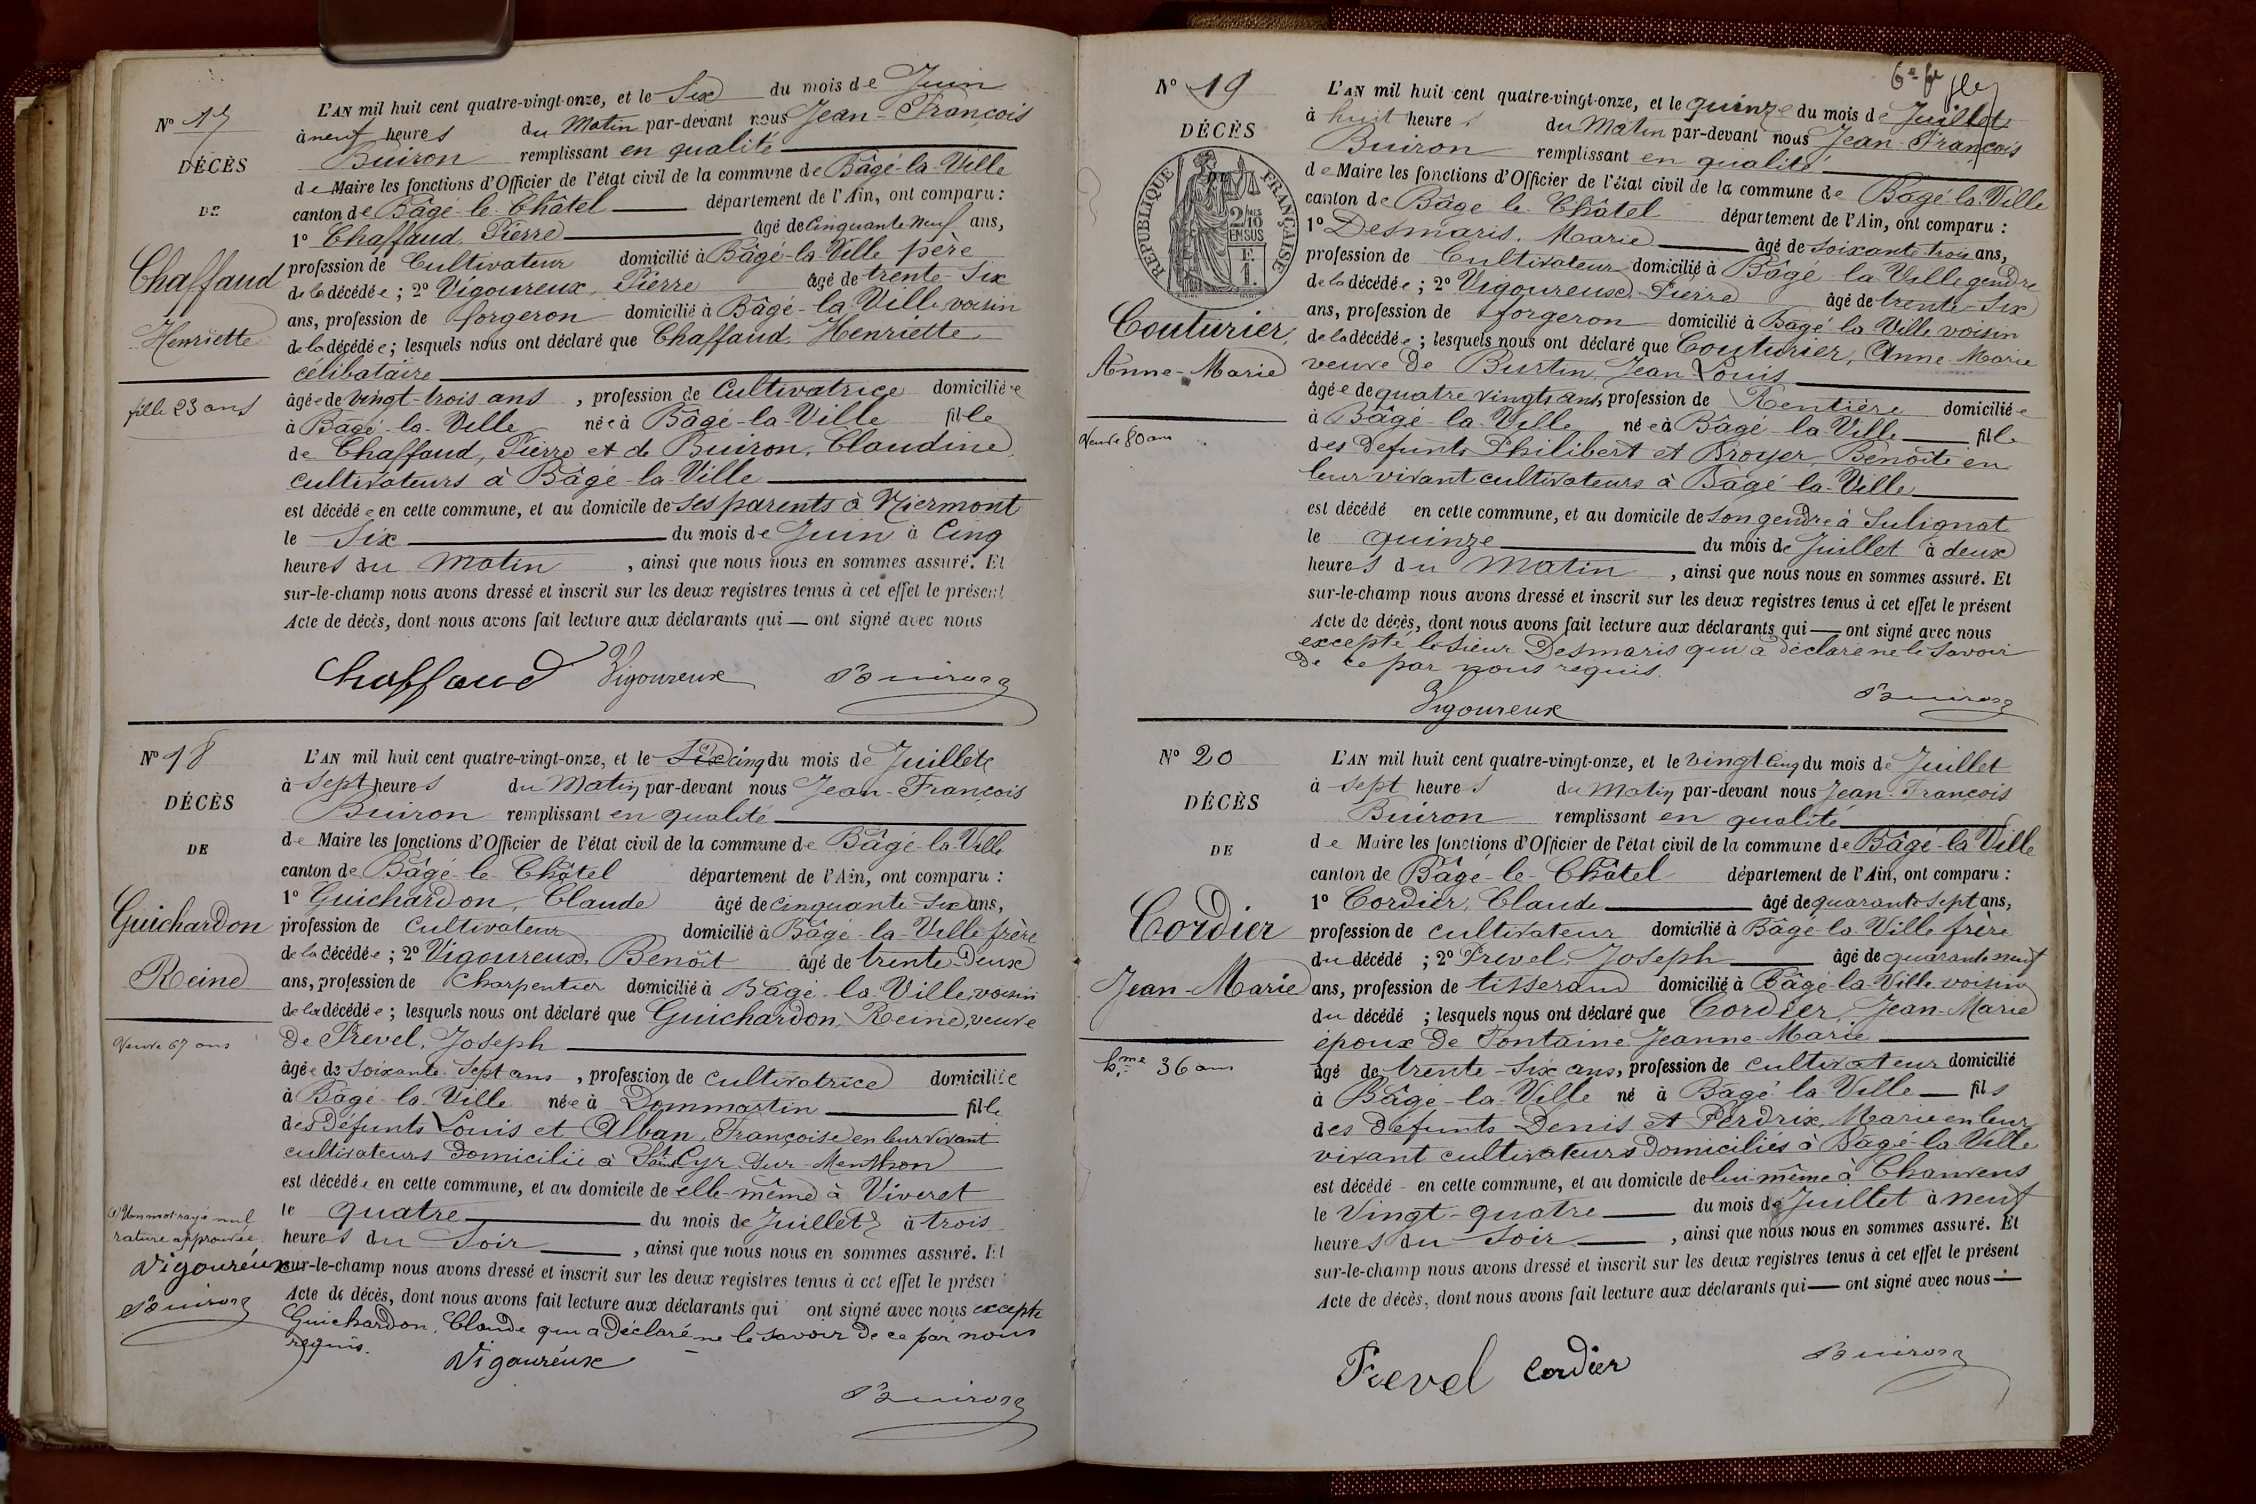 N° 17
DÉCÈS
DE
Chaffaud
Henriette
fille 23 ans
L'AN mil huit cent quatre-vingt-onze, et le Six du mois de Juin
à neuf heures du Matin par-devant nous Jean-François
Buiron remplissant en qualité
de Maire les fonctions d'Officier de l'état civil de la commune de Bâgé-la-Ville
canton de Bâgé-le-Châtel département de l'Ain, ont comparu :
1° Chaffaud, Pierre âgé de Cinquante Neuf ans,
profession de Cultivateur domicilié à Bâgé-la-Ville père
de la décédée ; 2° Vigoureux, Pierre âgé de trente-Six
ans, profession de forgeron domicilié à Bâgé-la-Ville voisin
de la décédée ; lesquels nous ont déclaré que Chaffaud, Henriette
célibataire
âgée de vingt-trois ans, profession de Cultivatrice domiciliée
à Bâgé-la-Ville née à Bâgé-la-Ville fille
de Chaffaud, Pierre et de Buiron, Claudine,
cultivateurs à Bâgé-la-Ville
est décédée en cette commune, et au domicile de ses parents à Niermont
le Six du mois de Juin à Cinq
heures du Matin, ainsi que nous nous en sommes assuré. Et
sur-le-champ nous avons dressé et inscrit sur les deux registres tenus à cet effet le présent
Acte de décès, dont nous avons fait lecture aux déclarants qui — ont signé avec nous
Chaffaud Vigoureux Buiron
N° 18
DÉCÈS
DE
Guichardon
Reine
Veuve 67 ans
L'AN mil huit cent quatre-vingt-onze, et le Six cinq du mois de Juillet
à Sept heures du Matin par-devant nous Jean-François
Buiron remplissant en qualité
de Maire les fonctions d'Officier de l'état civil de la commune de Bâgé-la-Ville
canton de Bâgé-le-Châtel département de l'Ain, ont comparu :
1° Guichardon, Claude âgé de cinquante-Six ans,
profession de cultivateur domicilié à Bâgé-la-Ville frère
de la décédée ; 2° Vigoureux, Benoît âgé de trente-Deux
ans, profession de Charpentier domicilié à Bâgé-la-Ville, voisin
de la décédée ; lesquels nous ont déclaré que Guichardon, Reine, veuve
De Prevel, Joseph
âgée de Soixante-Sept ans, profession de cultivatrice domiciliée
à Bâgé-la-Ville née à Dommartin fille
des Défunts Louis et Alban, Françoise en leur vivant
cultivateurs domicilié à Saint Cyr-Sur-Menthon
est décédée en cette commune, et au domicile de elle-même à Viveret
le quatre du mois de Juillet à trois
heures du Soir, ainsi que nous nous en sommes assuré. Et
sur-le-champ nous avons dressé et inscrit sur les deux registres tenus à cet effet le présent
Acte de décès, dont nous avons fait lecture aux déclarants qui ont signé avec nous excepté
Guichardon, Claude qui a Déclaré ne le savoir De ce par nous
requis.
Un mot rayé nul
rature approuvée
Vigoureux
Buiron
Vigoureux
Buiron
N° 19
DÉCÈS
RÉPUBLIQUE FRANÇAISE
2/10 EN SUS
Couturier,
Anne-Marie
Veuve 80 ans
L'AN mil huit cent quatre-vingt-onze, et le quinze du mois de Juillet
à huit heures du Matin par-devant nous Jean-François
Buiron remplissant en qualité
de Maire les fonctions d'Officier de l'état civil de la commune de Bâgé-la-Ville
canton de Bâgé-le-Châtel département de l'Ain, ont comparu :
1° Desmaris, Marie âgé de soixante trois ans,
profession de Cultivateur domicilié à Bâgé-la-Ville gendre
de la décédée ; 2° Vigoureux, Pierre âgé de trente-Six
ans, profession de forgeron domicilié à Bâgé-la-Ville voisin
de la décédée ; lesquels nous ont déclaré que Couturier, Anne-Marie
veuve De Burtin, Jean Louis
âgée de quatre vingts ans, profession de Rentière domiciliée
à Bâgé-la-Ville née à Bâgé-la-Ville fille
des Defunts Philibert et Broyer, Benoîte en
leur vivant cultivateurs à Bâgé-la-Ville
est décédé en cette commune, et au domicile de son gendre à Sulignat
le quinze du mois de Juillet à deux
heures du Matin, ainsi que nous nous en sommes assuré. Et
sur-le-champ nous avons dressé et inscrit sur les deux registres tenus à cet effet le présent
Acte de décès, dont nous avons fait lecture aux déclarants qui — ont signé avec nous
excepté le Sieur Desmaris qui a déclaré ne le savoir
De ce par nous requis.
Vigoureux Buiron
N° 20
DÉCÈS
DE
Cordier
Jean-Marie
h.me 36 ans
L'AN mil huit cent quatre-vingt-onze, et le vingt Cinq du mois de Juillet
à Sept heures du Matin par-devant nous Jean-François
Buiron remplissant en qualité
de Maire les fonctions d'Officier de l'état civil de la commune de Bâgé-la-Ville
canton de Bâgé-le-Châtel département de l'Ain, ont comparu :
1° Cordier, Claude âgé de quarante Sept ans,
profession de cultivateur domicilié à Bâgé-la-Ville frère
du décédé ; 2° Prevel, Joseph âgé de quarante neuf
ans, profession de tisserand domicilié à Bâgé-la-Ville voisin
du décédé ; lesquels nous ont déclaré que Cordier, Jean-Marie
époux De Fontaine, Jeanne-Marie
âgé de trente-Six ans, profession de cultivateur domicilié
à Bâgé-la-Ville né à Bâgé-la-Ville — fils
des Défunts Denis et Perdrix, Marie en leur
vivant cultivateurs Domiciliés à Bâgé-la-Ville
est décédé en cette commune, et au domicile de lui-même à Chanvens
le Vingt-quatre du mois de Juillet à neuf
heures du Soir, ainsi que nous nous en sommes assuré. Et
sur-le-champ nous avons dressé et inscrit sur les deux registres tenus à cet effet le présent
Acte de décès, dont nous avons fait lecture aux déclarants qui — ont signé avec nous —
Prevel Cordier Buiron